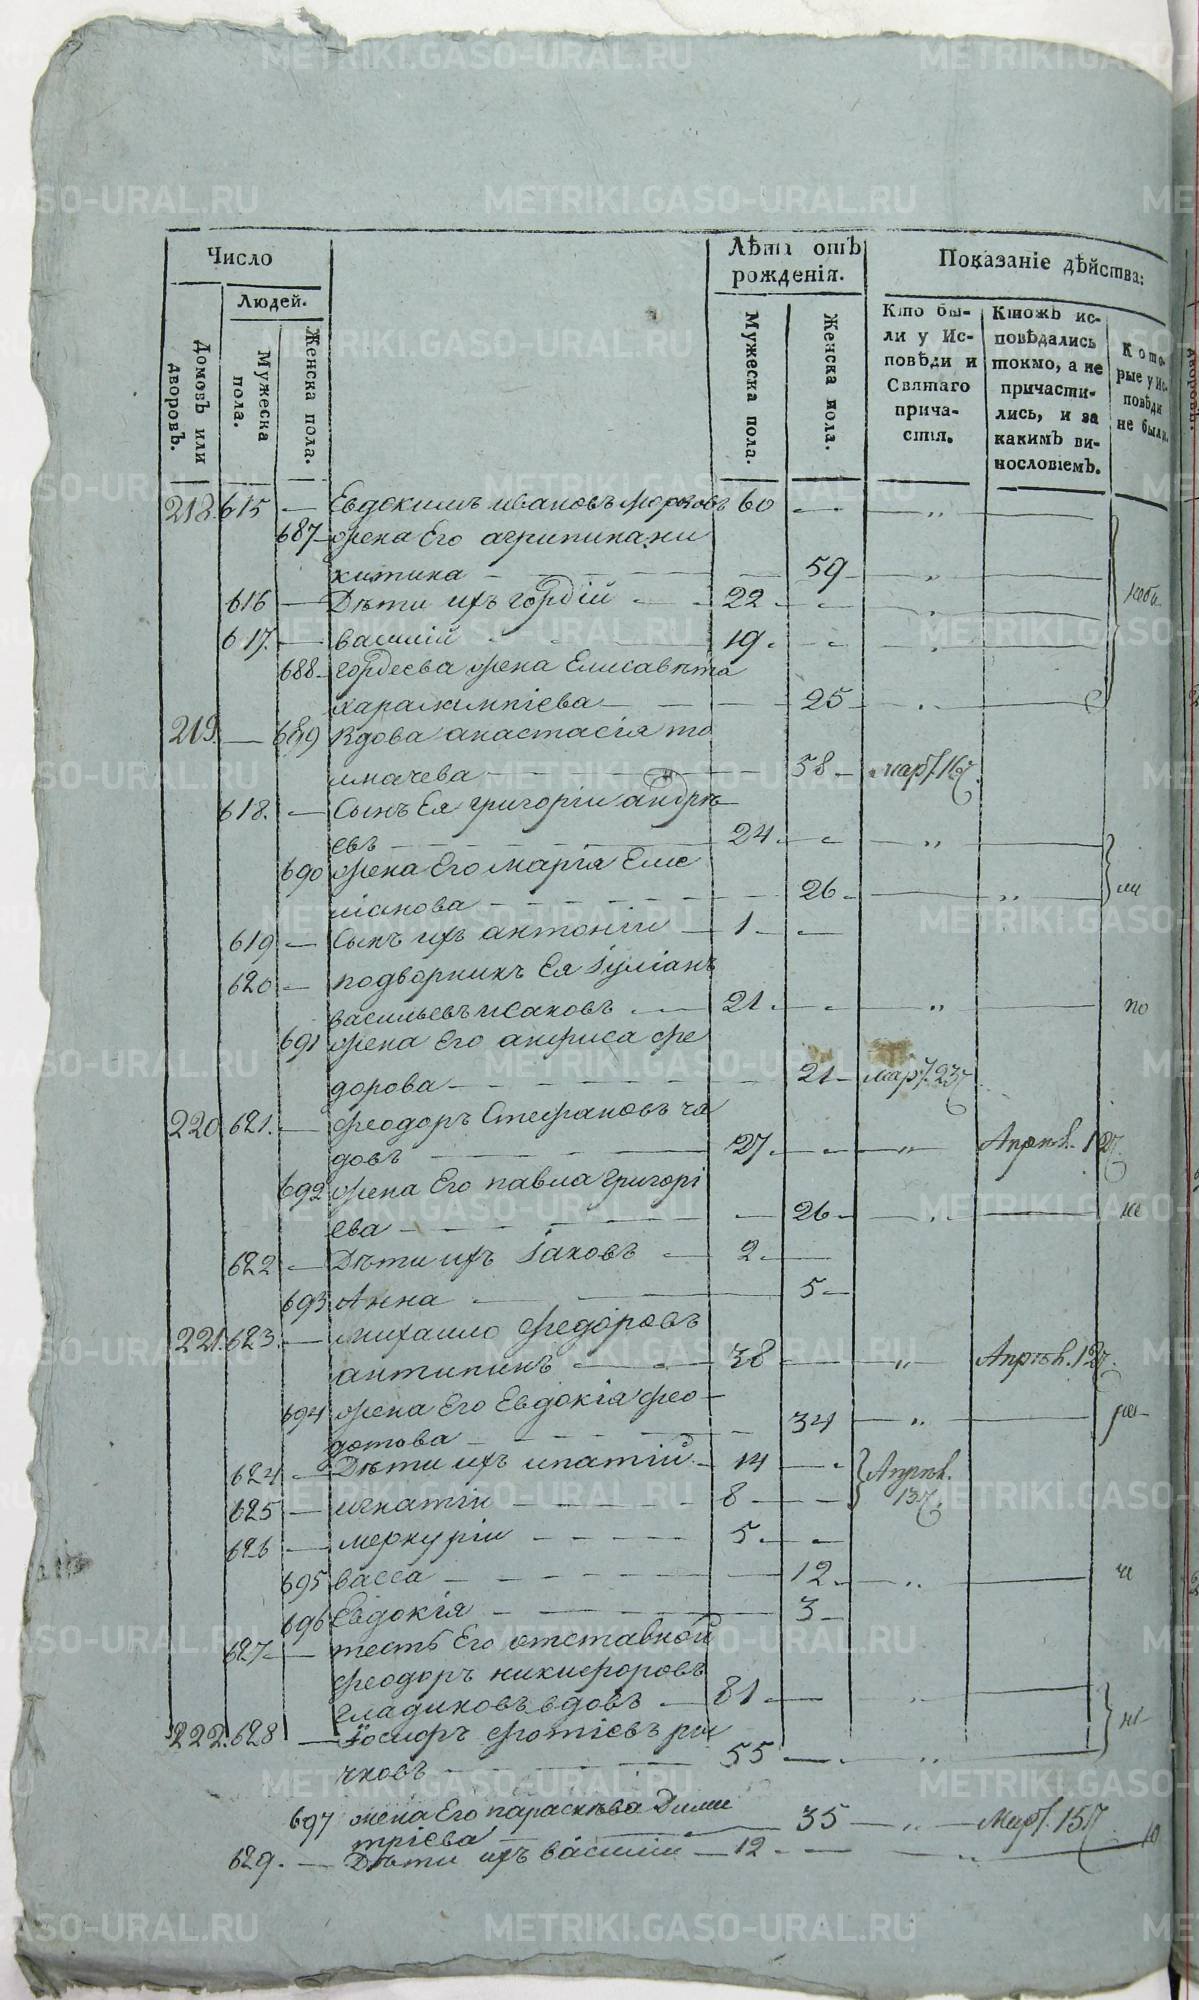 Число
Людей.
Домовъ или дворовъ.
Мужеска пола.
Женска пола.
Лѣта отъ рожденія.
Мужеска пола.
Женска пола.
Показаніе дѣйства:
Кто бы-
ли у Ис-
повѣди и
Святаго
прича-
стія.
Ктожъ ис-
повѣдались
токмо, а не
причасти-
лись, и за
какимъ ви-
нословіемъ.
Кото-
рые у Ис-
повѣди
не были.
218. 615 — Евдокимъ ивановъ 60 — „
687 — жена Его агрипина ни
китина — 59 — „
616 — Дѣти ихъ гордій — 22 — „
617. — василій — 19. — „
688 — гордеева жена Елисавѣта
харалампіева — 25 — „
219. — 689 вдова анастасія то
лмачева — 58 — март. 16
618. — Сынъ Ея григорій андрѣ
евъ — 24. — „
690 жена Его марія Еме
ліанова — 26 — „
619 — Сынъ ихъ антоній — 1 —
620 — подворникъ Ея Іуліанъ
васильевъ исаковъ — 21 — „ по
691 жена Его анфиса фе
дорова — 21 — март. 23
220 621. — феодоръ Стефановъ ча
довъ — 27 — „ Апрѣл. 12
692 жена Его павла григорі
ева — 26 — „ не
622 — Дѣти ихъ Іаковъ — 2 —
693 Анна — 5 —
221. 623. — михаило федоровъ
антипинъ — 38 — „ Апрѣл. 12
694 жена Его Евдокія фео-
дотова — 34 — „
624 — Дѣти ихъ ипатій — 14 — Апрѣл.
625 — игнатіи — 8 — 13
626 — меркуріи — 5 —
695 васса — 12 — „
696 Евдокія — 3 —
627 — тесть Его отставной
феодоръ никифоровъ
гладиковъ вдовъ — 81 —
222. 628 — Іосифъ фотіевъ ры
чковъ — 55 — „ не
697 жена Его параскѣва Дими
тріева — 35 — „ — Март. 15
629. — Дѣти ихъ василіи — 12 — „
METRIKI.GASO-URAL.RU